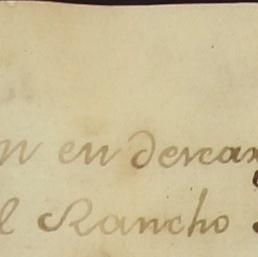 n en descar
l Rancho